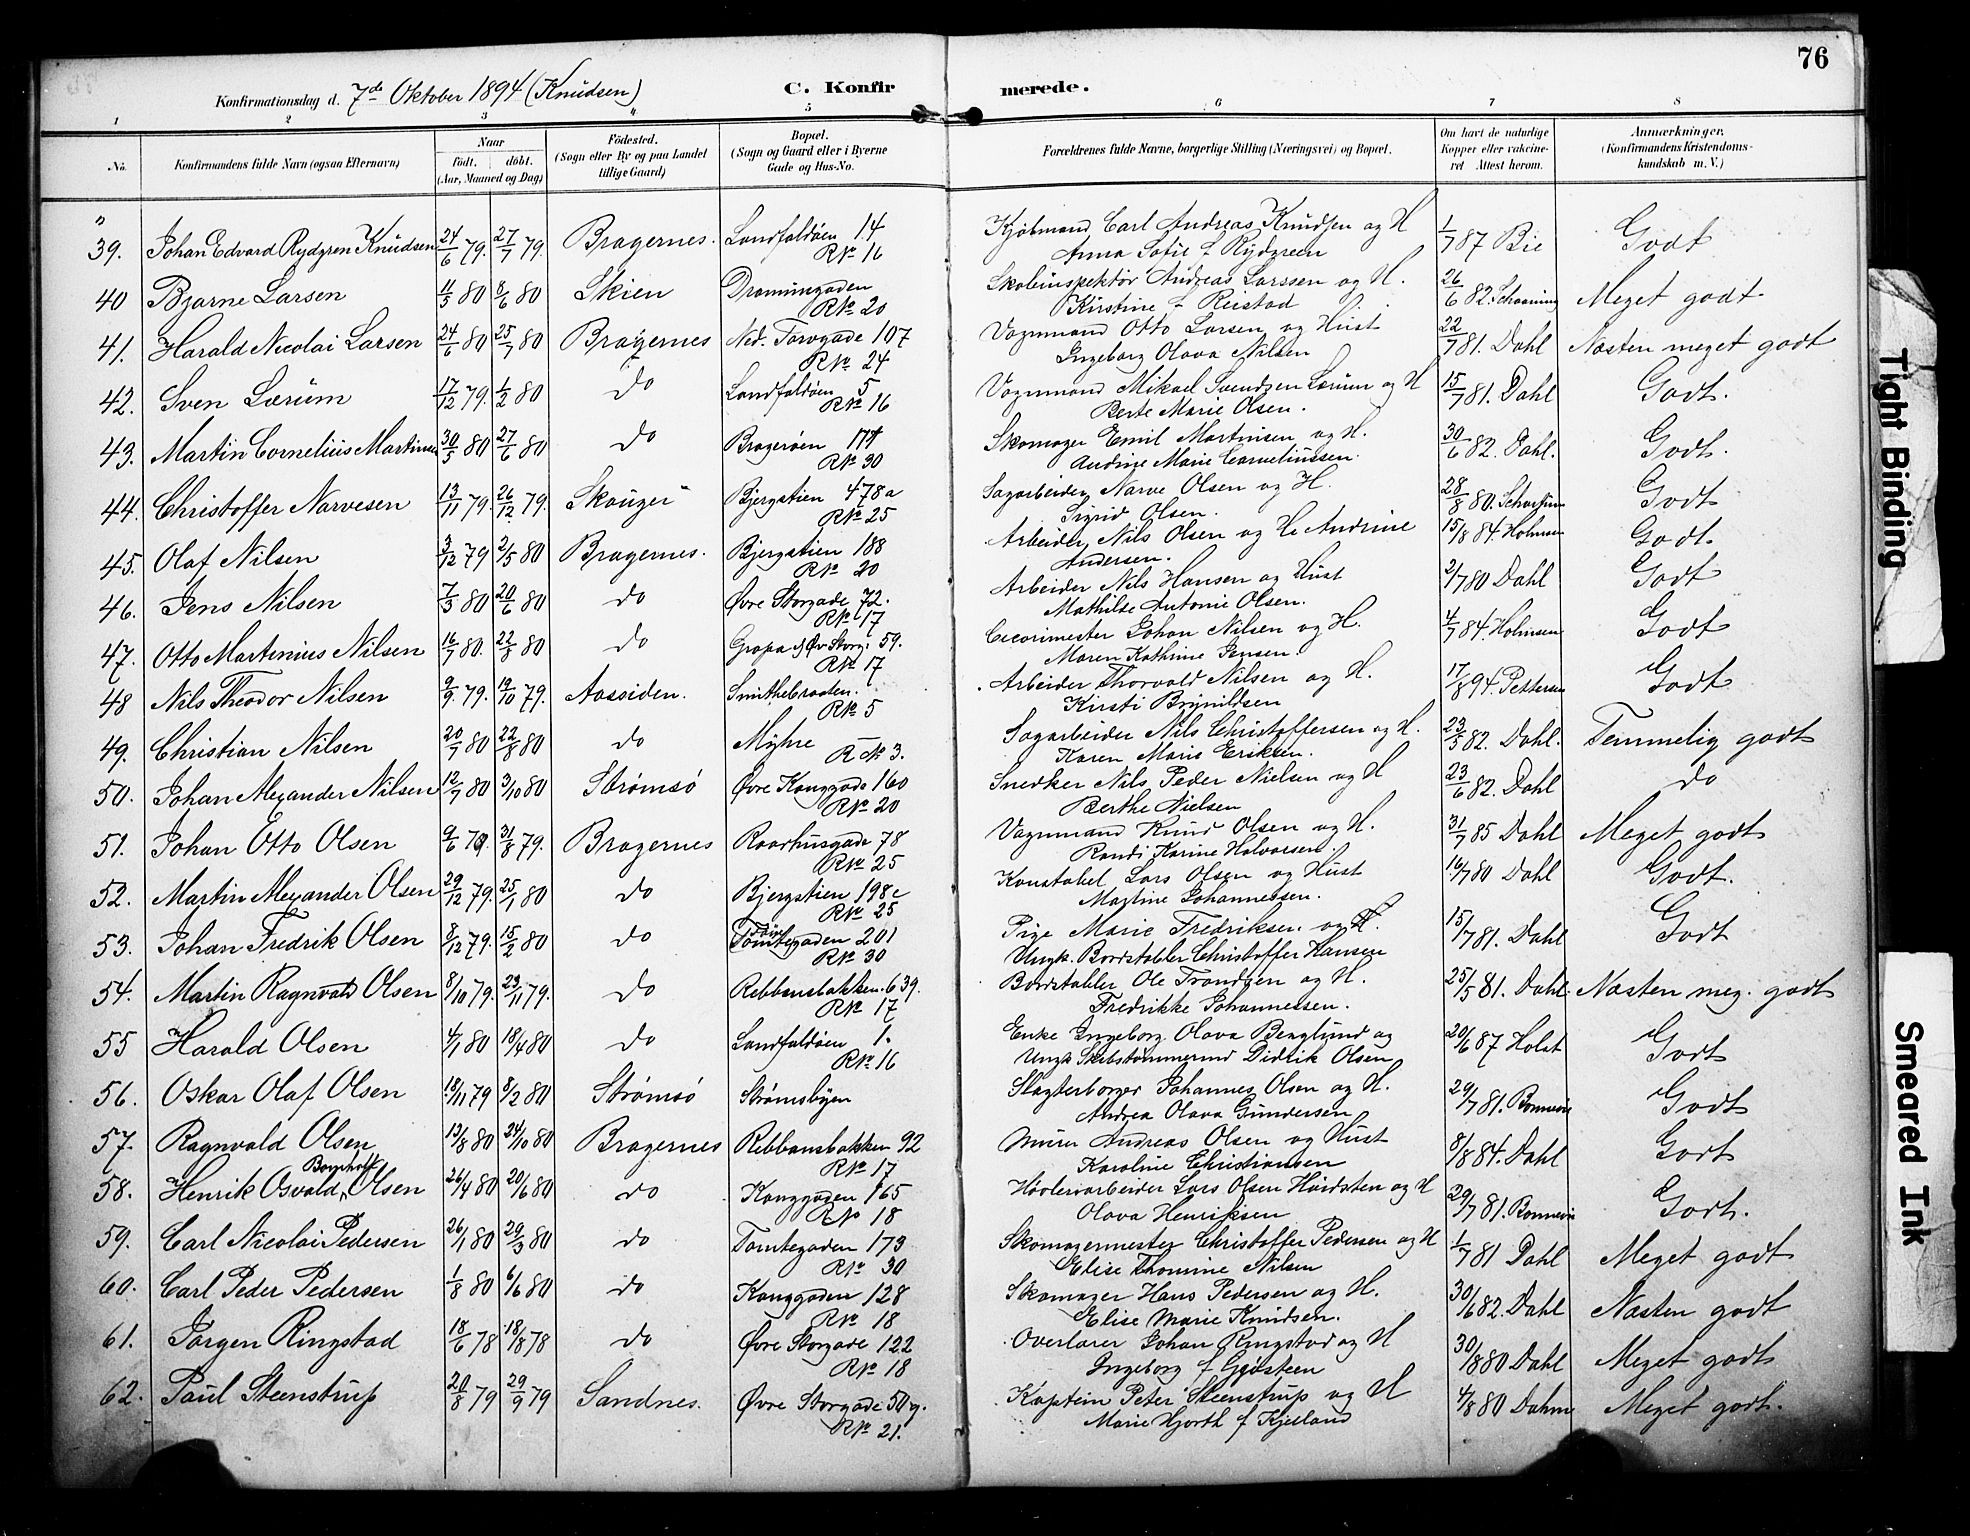 76
Konfirmationsdag d. 7de Oktober 1894 (Knudsen)
C. Konfirmerede.
1 2 3 4 5 6 7 8
No. Konfirmandens fulde Navn (ogsaa Efternavn) Naar födt. döbt. (Aar, Maaned og Dag) Födested. (Sogn eller By og paa Landet tillige Gaard) Bopæl. (Sogn og Gaard eller i Byerne Gade og Hus-No. Forældrenes fulde Navne, borgerlige Stilling (Næringsvei) og Bopæl. Om havt de naturlige Kopper eller vakcineret Attest herom. Anmærkninger. (Konfirmandens Kristendomskundskab m. V.)
39. Johan Edvard Rydgren Knudsen 24/6 79. 27/7 79. Bragernes. Landfaldöen 14 Kjøbmand Carl Andreas Knudsen og H 1/7 87 Bie Godt
R№ 16 Anna Sofie f. Rydgreen
40 Bjarne Larsen 11/5 80 8/6 80 Skien Drammensgaden Skoleinspektör Andreas Larssen og H. 26/6 82. Meget godt
R№ 20 Kirstine f Reistad
41. Harald Nicolai Larsen 24/6 80 25/7 80 Bragernes Ned. Torvgade 107 Vognmand Otto Larsen og Hust 22/7 81. Dahl Næsten meget godt
R№ 24 Ingeborg Olava Nilsen
42. Sven Lærum 17/12 79. 1/2 80 do Landfaldöen 5 Vognmand Mikael Svendsen Lærum og H 15/7 81. Dahl Godt.
R№ 16 Berte Marie Olsen.
43. Martin Cornelius Martinsen 30/5 80 27/6 80 do Bragerøen 174 Skomager Emil Martinsen og H. 30/6 82. Dahl. Godt.
R№ 30 Andine Marie Corneliussen.
44. Christoffer Narvesen 13/11 79. 26/12 79. Skouger Bjergstien 478a Sagarbeider Narve Olsen og H. 28/8 80. Godt
R№ 25 Sigrid Olsen.
45. Olaf Nilsen 3/12 79 2/5 80 Bragernes. Bjergstien 188 Arbeider Nils Olsen og H. Andrine 15/8 84. Holmsen Godt.
R№ 20 Andersen.
46. Jens Nilsen 7/3 80 20/6 80 do Øvre Storgade 72. Arbeider Nils Hansen og Hust 2/7 80 Dahl Godt
R№ 17 Mathilde Antonie Olsen.
47. Otto Martinius Nilsen 16/7 80. 22/8 80 do Gropa og Øv Storg. 59. Cicorimester Johan Nilsen og H. 4/7 84. Holmsen Godt
R№ 17 Maren Kathrine Jensen.
48 Nils Theodor Nilsen 9/9 79. 19/10 79. Aassiden. Smithebraaten. Arbeider Thorvald Nilsen og H. 17/8 94. Pettersen Godt
R№ 5 Kirsti Brynildsen
49. Christian Nilsen 20/7 80 22/8 80 do Myhre Sagarbeider Nils Christoffersen og H. 23/5 82. Dahl. Temmelig godt
R№ 3. Karen Marie Eriksen.
50. Johan Alexander Nilsen 12/7 80 3/10 80 Strømsö Øvre Konggade 160 Snedker Nils Peder Nielsen og H 23/6 82. Dahl do
R№ 20 Berthe Nielsen
51. Johan Otto Olsen 9/6 79. 31/8 79. Bragernes Raadhusgade 78 Vognmand Knud Olsen og H. 31/7 85 Dahl Meget godt
R№ 25 Randi Karine Halvorsen.
52. Martin Alexander Olsen 29/12 79. 25/1 80 do Bjergstien 198c Konstabel Lars Olsen og Hust 16/7 80 Dahl Godt.
R№ 25 Martine Johannessen.
53. Johan Fredrik Olsen 8/12 79. 15/2 80 do Tomtegaden 201 Pige Marie Fredriksen og H. 15/7 81. Dahl Godt
R№ 30 Ungk. Bordstabler Christoffer Hansen
54. Martin Ragnvald Olsen 8/10 79. 23/11 79. do Rebbansbakken 639. Bordstabler Ole Trondsen og H. 25/5 81. Dahl. Næsten meg. godt
R№ 17 Fredrikke Johannessen.
55 Harald Olsen 4/1 80 18/4 80 do Landfaldöen 1. Enke Ingeborg Olava Berglund og 20/6 87 Holst Godt
R№ 16 Ungk Skibstømmermd Didrik Olsen
56. Oskar Olaf Olsen 18/11 79 8/2 80 Strömsö Strömsbyen Slagterborger Johannes Olsen og H. 29/7 81. Bonnevie Godt
Andrea Olava Gundersen
57. Ragnvald Olsen 13/8 80 24/10 80 Bragernes Rebbansbakken 92 Murer Andreas Olsen og Hust 8/8 84. Dahl Godt
R№ 17 Karoline Christiansen
58. Henrik Osvald Bomholt Olsen 26/4 80 20/6 80 do Konggaden 165 Høvleriarbeider Lars Olsen Hoidsten og H 29/7 81. Bonnevie Godt.
R№ 18 Olava Henriksen
59. Carl Nicolai Pedersen 26/1 80 29/3 80 do Tomtegaden 173 Skomagermester Christoffer Pedersen og H 1/7 81 Dahl Meget godt
R№ 30 Elise Thomine Nilsen
60. Carl Peder Pedersen 1/8 80 6/6 80 do Konggaden 128 Skomager Hans Pedersen og H. 30/6 82. Dahl Næsten godt
R№ 18 Elise Marie Knudsen.
61. Jørgen Ringstad 18/6 78 18/8 78 do Øvre Storgade 122 Overlærer Johan Ringstad og H 30/8 80 Dahl Meget godt
R№ 18 Ingeborg f
62. Paul Steenstrup 20/8 79 29/9 79 Sandnes. Øvre Storgade 50g. Kaptein Peter Steenstrup og H 4/8 80 Dahm Meget godt.
R№ 21. Marie Hjorth f Kjelland
Tight Binding
Smeared Ink